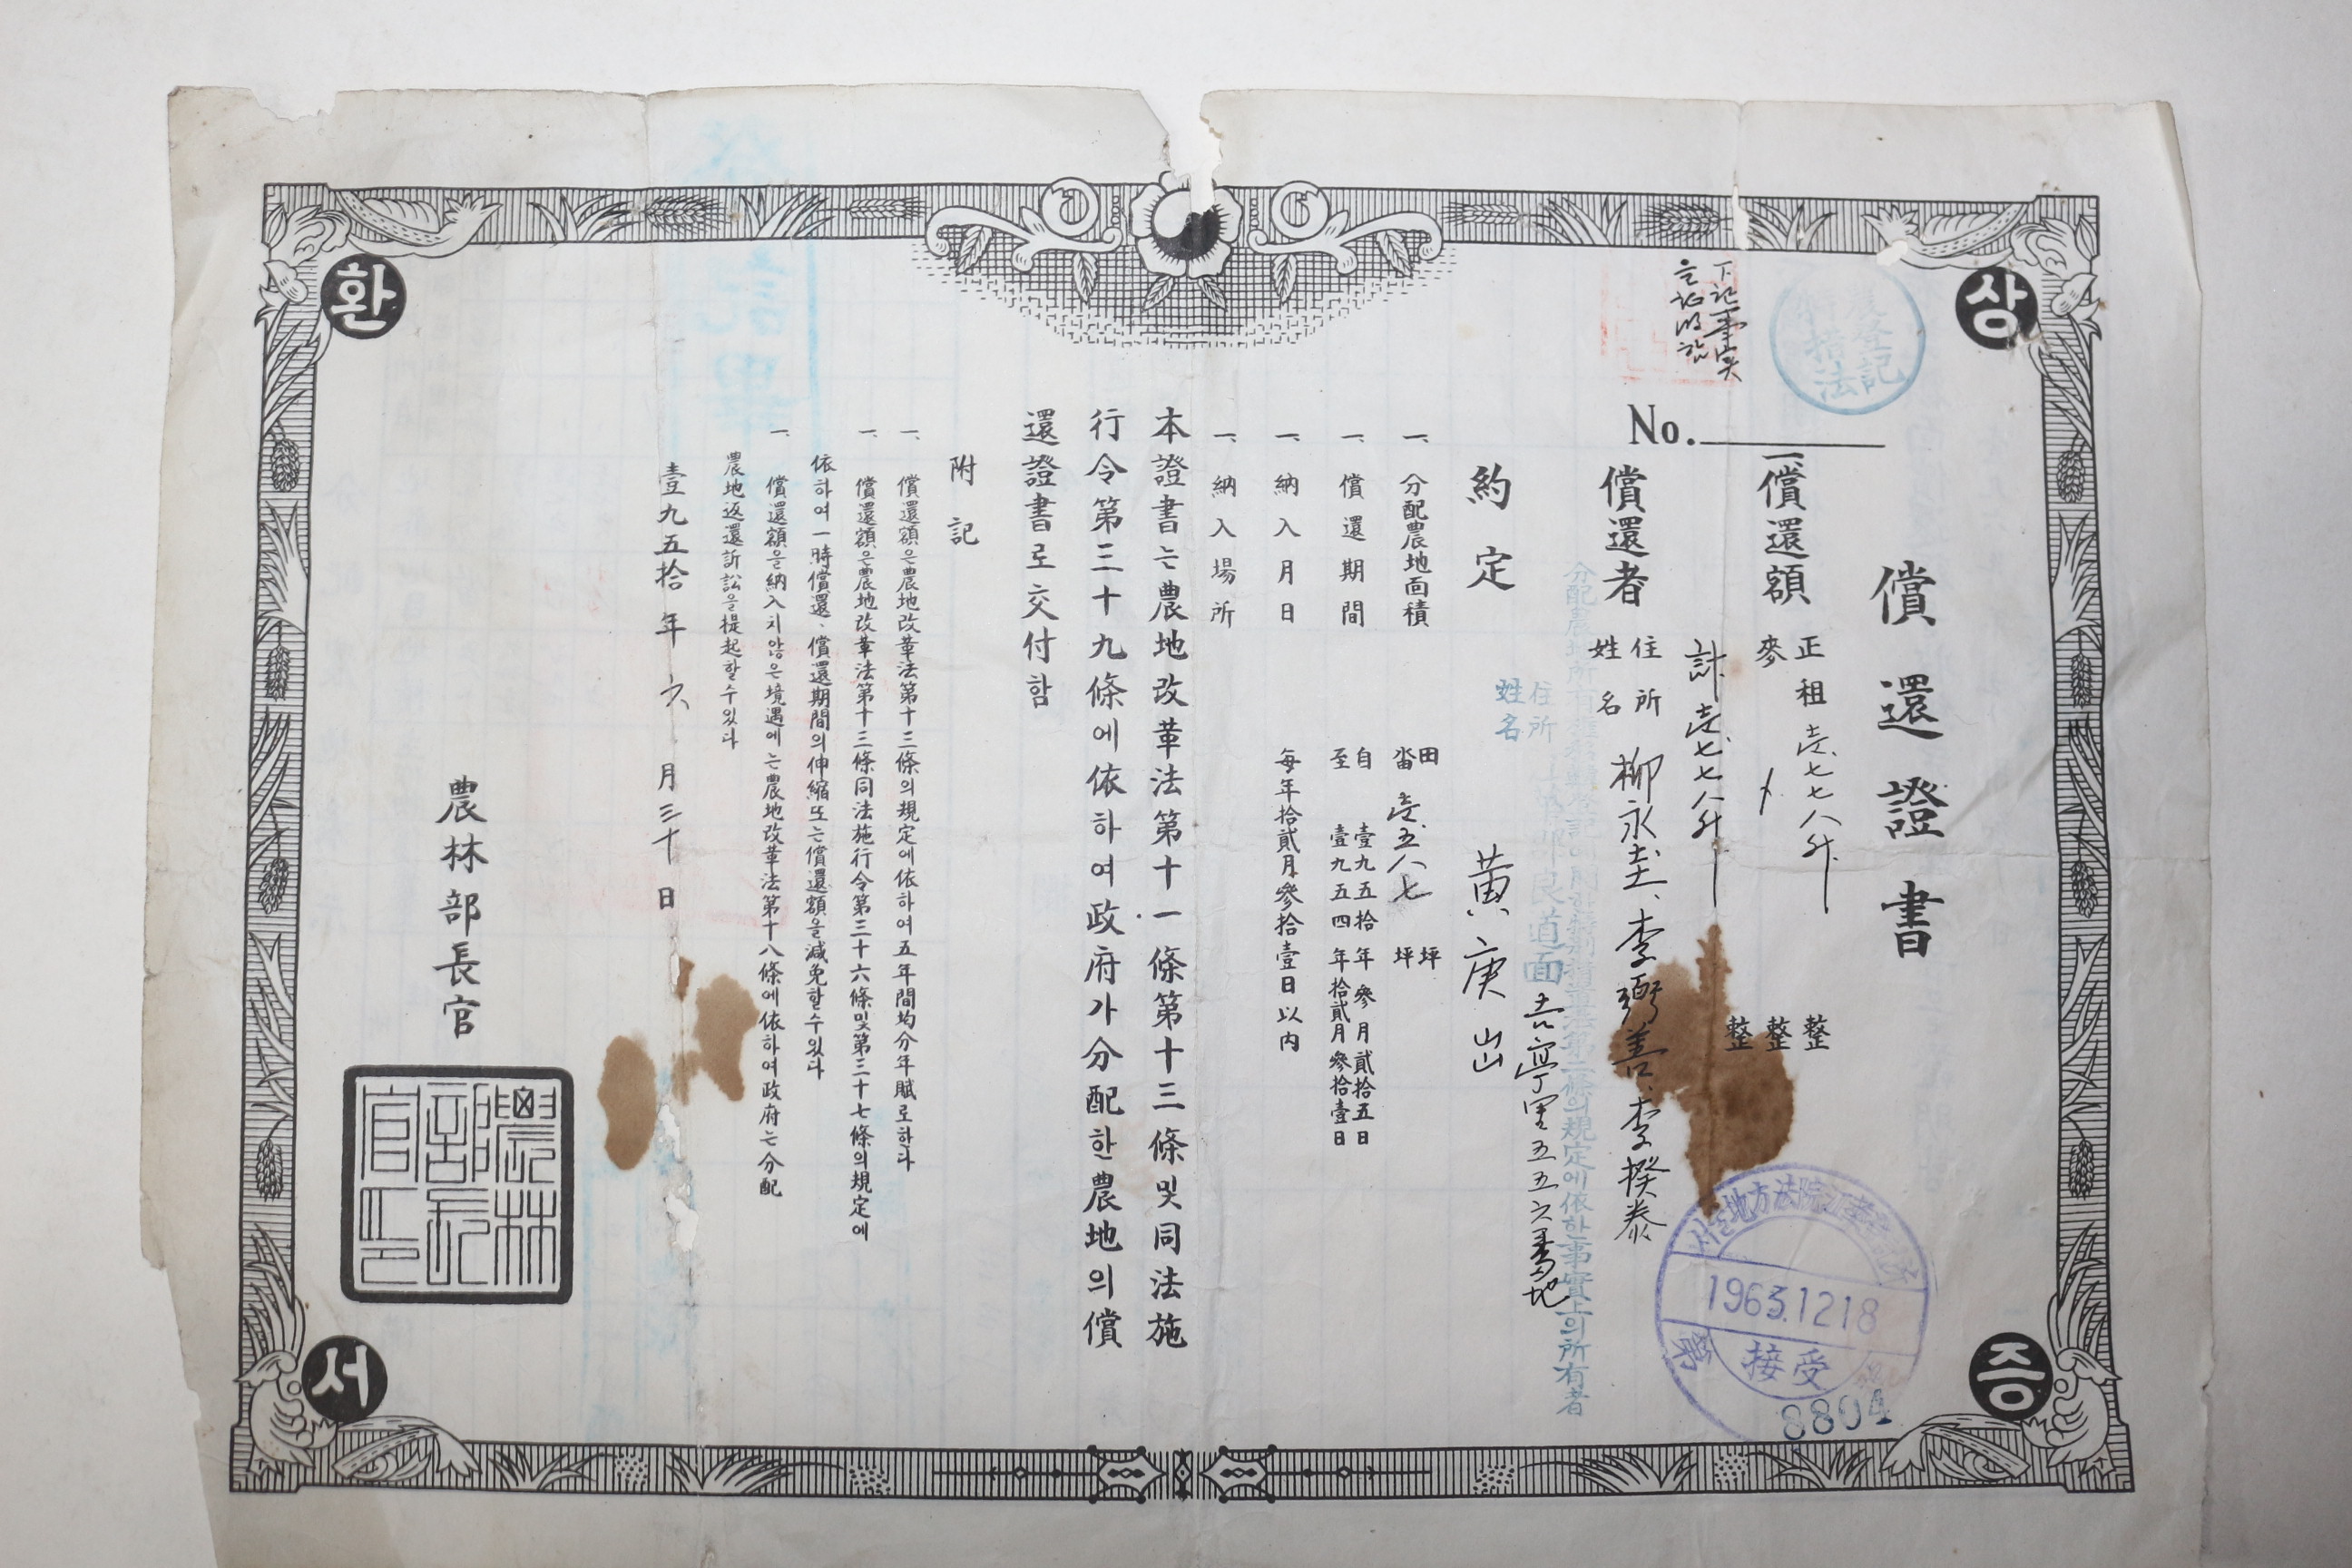 상환증서
償還證書
No.
一、償還額
正租 壱七七八升 整
麥 整
計 壱七七八升 整
償還者
住所
姓名 柳永圭、李弼善、李揆泰
分配農地所有權移轉登記에關한特別措置法第二條의規定에依한事實上의所有者
住所 良道面 吉亭里五五六番地
姓名 黃庚山
約定
一、分配農地面積 田 坪
畓 壱五八七 坪
一、償還期間 自 壹九五拾年參月貳拾五日
至 壹九五四年拾貳月參拾壹日
一、納入月日 每年拾貳月參拾壹日以內
一、納入場所
本證書는農地改革法第十一條第十三條및同法施
行令第三十九條에依하여政府가分配한農地의償
還證書로交付함
附記
一、償還額은農地改革法第十三條의規定에依하여五年間均分年賦로하다
一、償還額은農地改革法第十三條同法施行令第三十六條및第三十七條의規定에
依하여一時償還、償還期間의伸縮또는償還額을減免할수있다
一、償還額을納入치않은境遇에는農地改革法第十八條에依하여政府는分配
農地返還訴訟을提起할수있다
壹九五拾年六月三十日
農林部長官
農林部長官印
1963.12.18
接受
第
8804